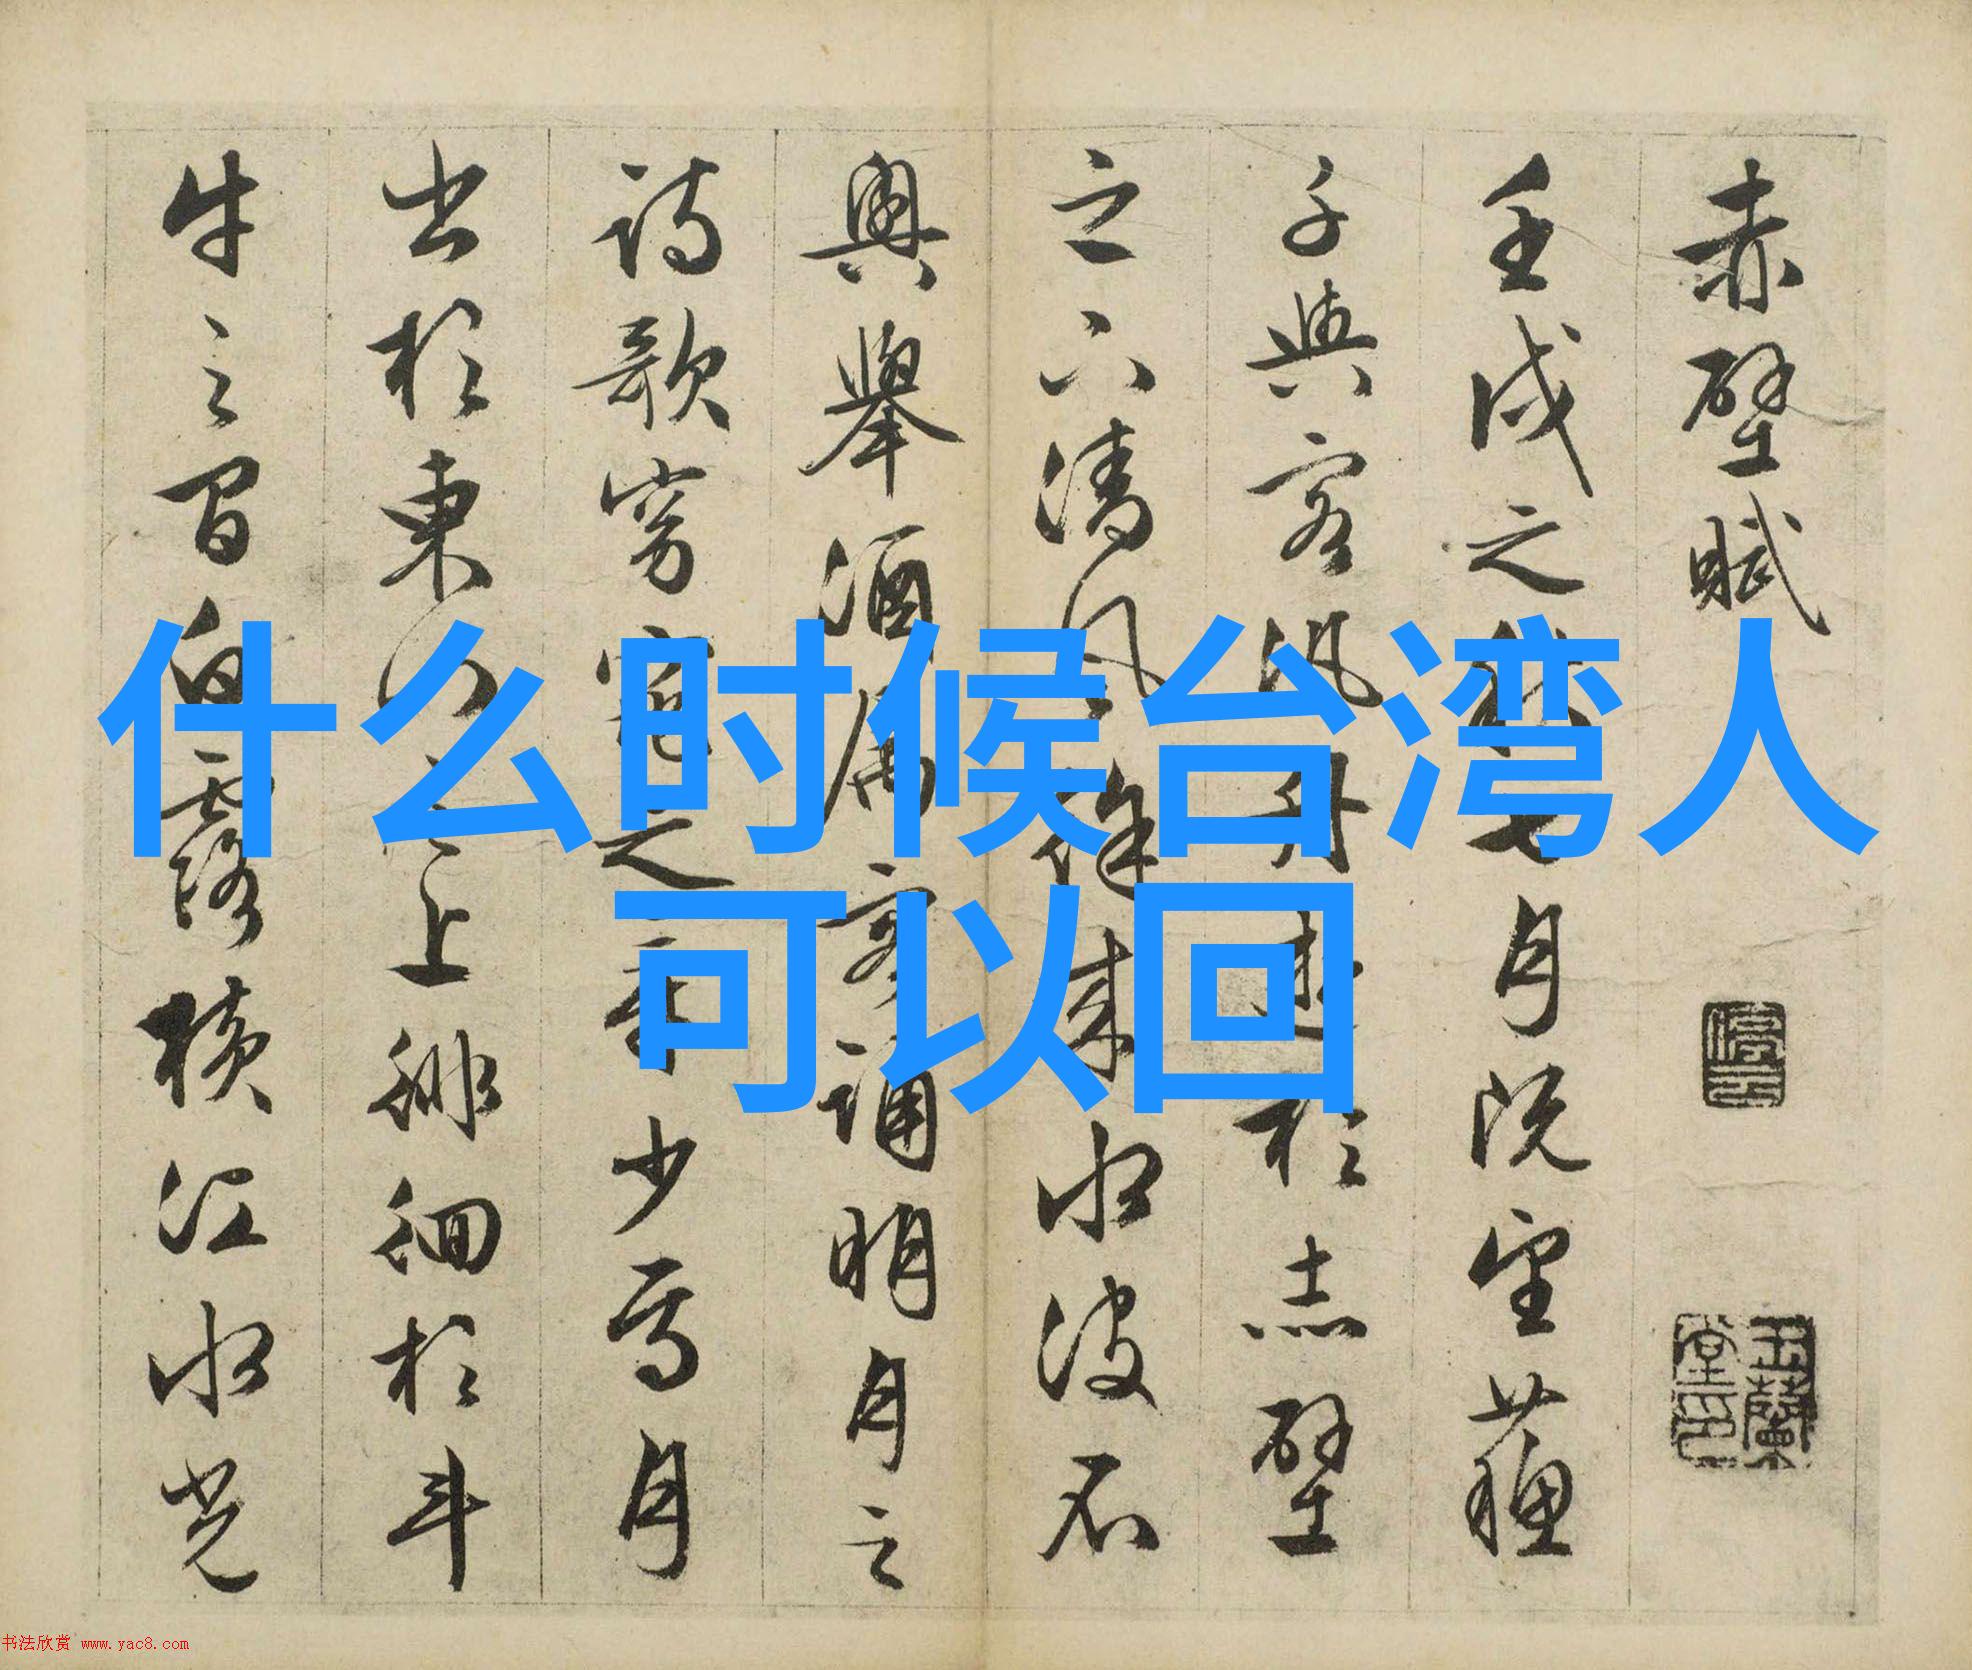 赤壁賦
壬戌之秋七月既望蘇
子與客汎舟遊於赤壁
之下清風徐來水波不
興舉酒屬客誦明月之
詩歌窈窕之章少焉月
出於東山之上徘徊於斗
牛之間白露橫江水光
什么时候台湾人
可以回
书法欣赏 www.yac8.com